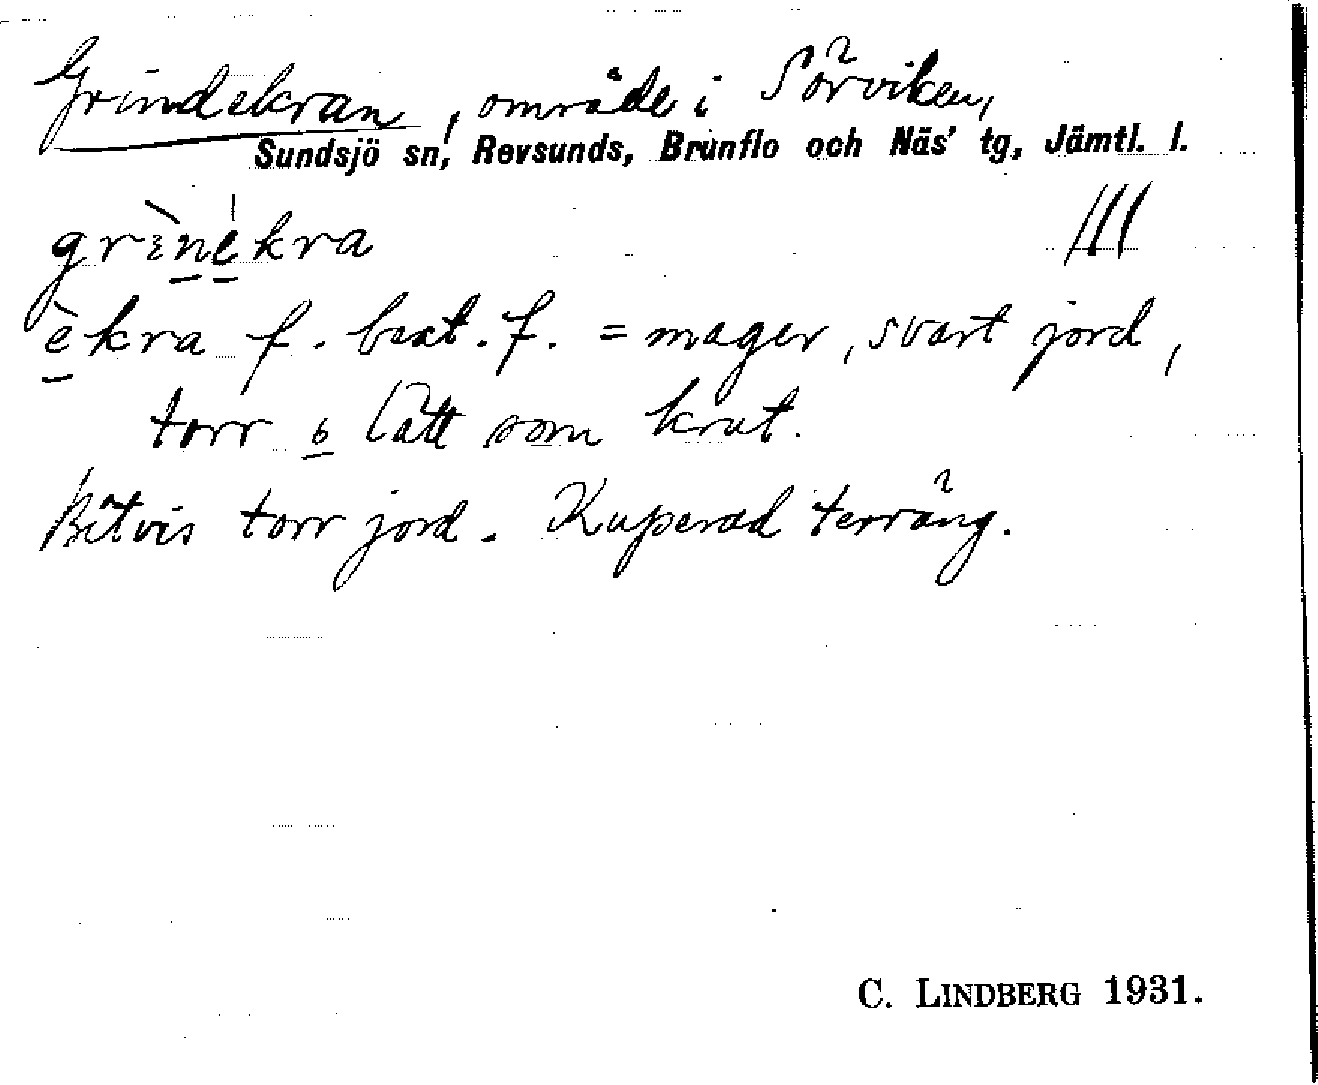 Grindekran, område i Sörviken,
Sundsjö sn, Revsunds, Brunflo och Näs' tg, Jämtl. l.
grìnèkra ///
èkra f. best. f. = mager, svart jord,
torr o lätt som krut.
Bitvis torr jord. Kuperad terräng.
C. LINDBERG 1931.